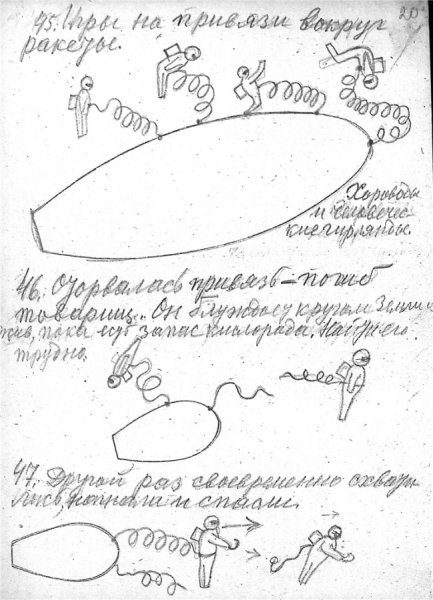 45. Игры на привязи вокруг
20
ракеты.
Хороводы
и человечес-
кие гирлянды.
46. Оторвалась привязь – погиб
товарищ. Он блуждает кругом Земли и
жив, пока есть запас кислорода. Найти его
трудно.
47. Другой раз своевременно схвати-
лись, поймали и спасли.